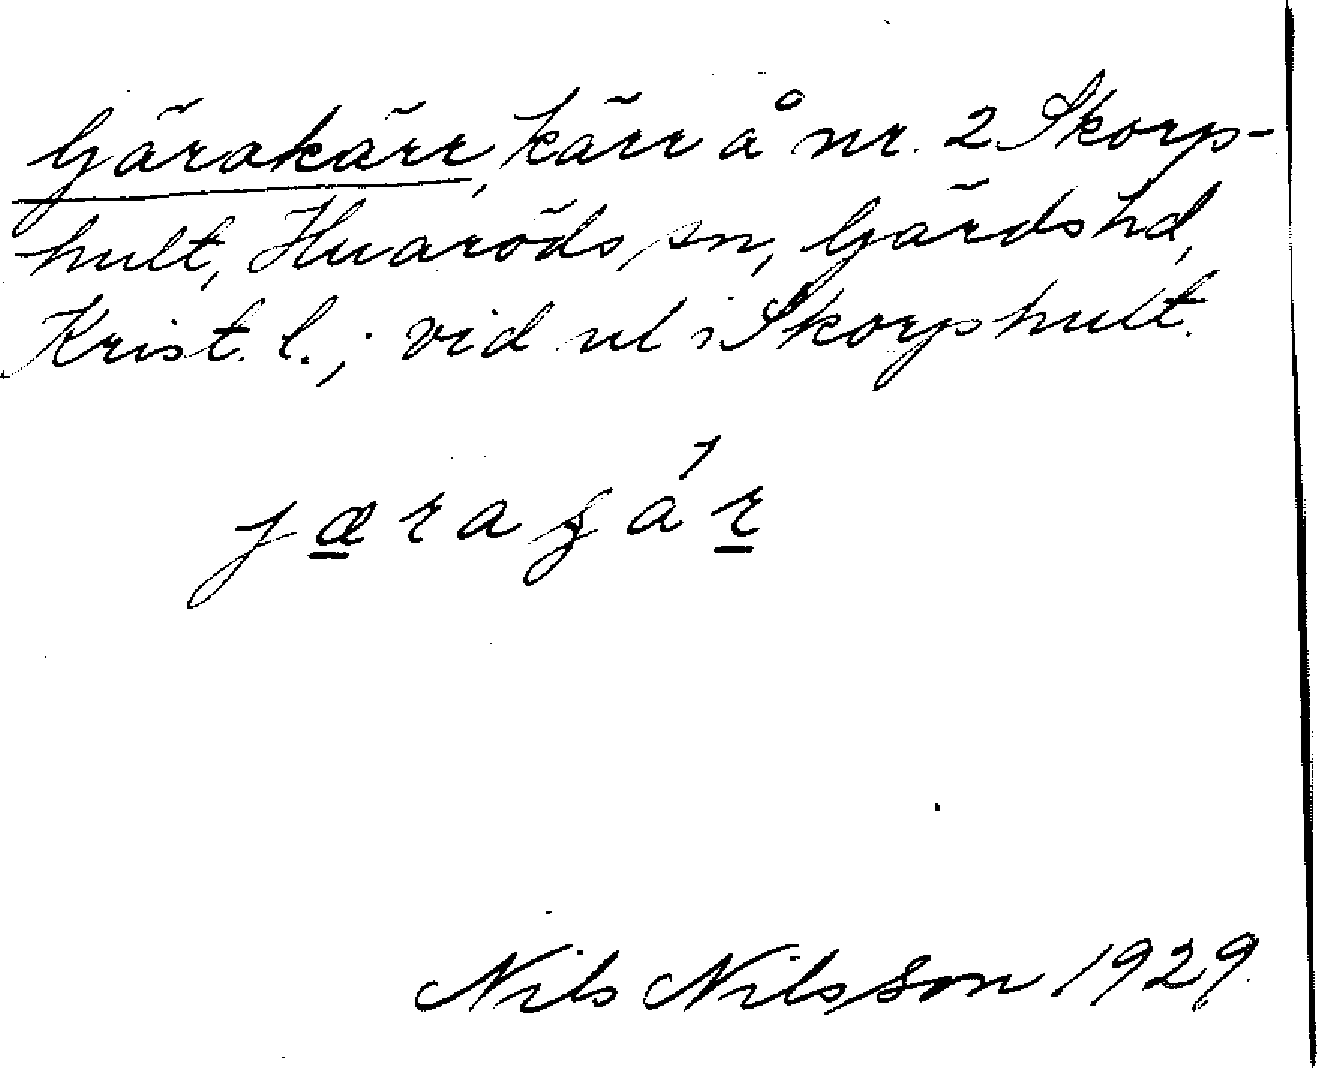 Gärakärr, kärr å nr. 2 Skorps-
hult, Huaröds sn, Gärds hd,
Krist. l.; vid nl i Skorpshult.
Nils Nilsson 1929.